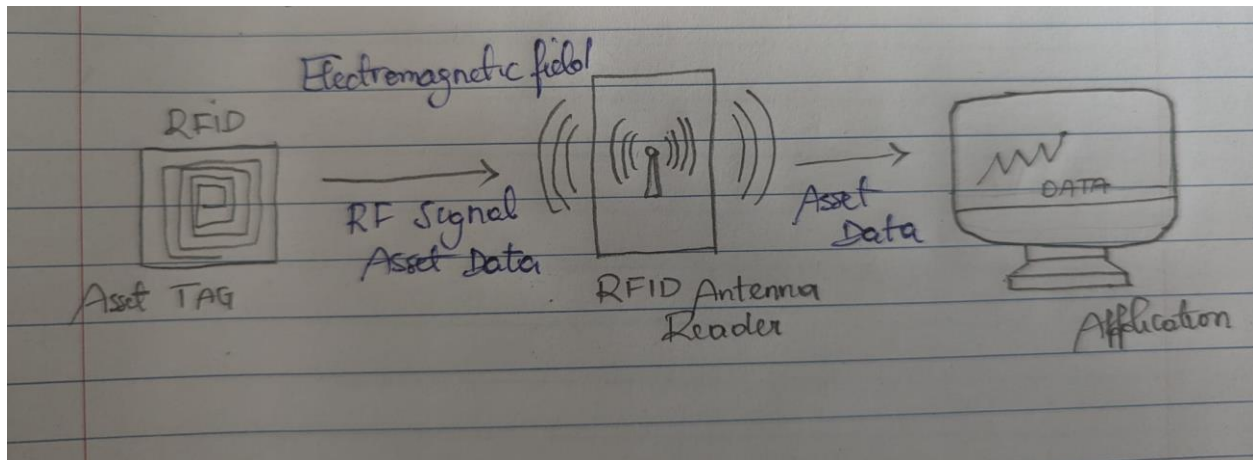 Electromagnetic field
RFiD
RF Signal
Asset Data
Asset TAG
RFID Antenna
Reader
Asset
Data
DATA
Application